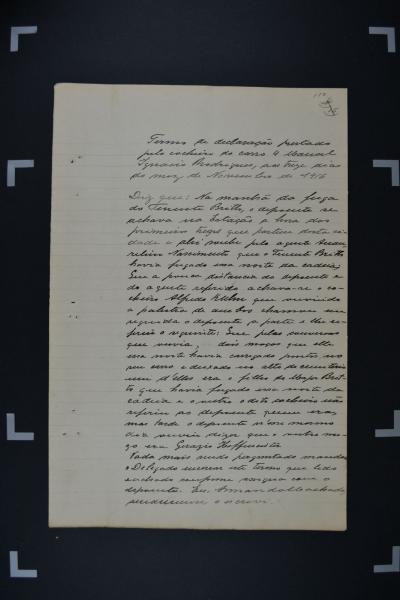 Termo de declaração prestado
pelo cocheiro do carro 4 Manoel
Ignacio Rodrigues, aos treze dias
do mez de Novembro de 1916
Diz que: Na manhã da fuga
do Tenente Britto, o deponente se
achava na Estação a hora dos
primeiro trens que partem desta ci-
dade e ahi soube pelo agente
Nascimento que o Tenente Britto
havia fugado essa noite da cadeia;
Que a pouca distancia do deponente e
do agente referido achava-se o co-
cheiro Alfredo que ouvindo
a palestra de ambos chamou em
seguida o deponente a parte e lhe
o seguinte: Que pelas
que ouvia, dois moços que elle
essa noite havia carregado
no carro e deixado no alto do cemiterio
um d'elles era o filho do Major Brit-
to que havia fugado essa noite da
cadeia e o outro o dito cocheiro não
referiu ao deponente quem era,
mas tarde o deponente n'esse mesmo
dia ouvira dizer que o outro mo-
ço era Hoffmeister
Nada mais sendo perguntado mandou
o Delegado encerrar este termo que lido
e achado conforme assigna com o
deponente. Eu, Armando Machado,
escrevi.